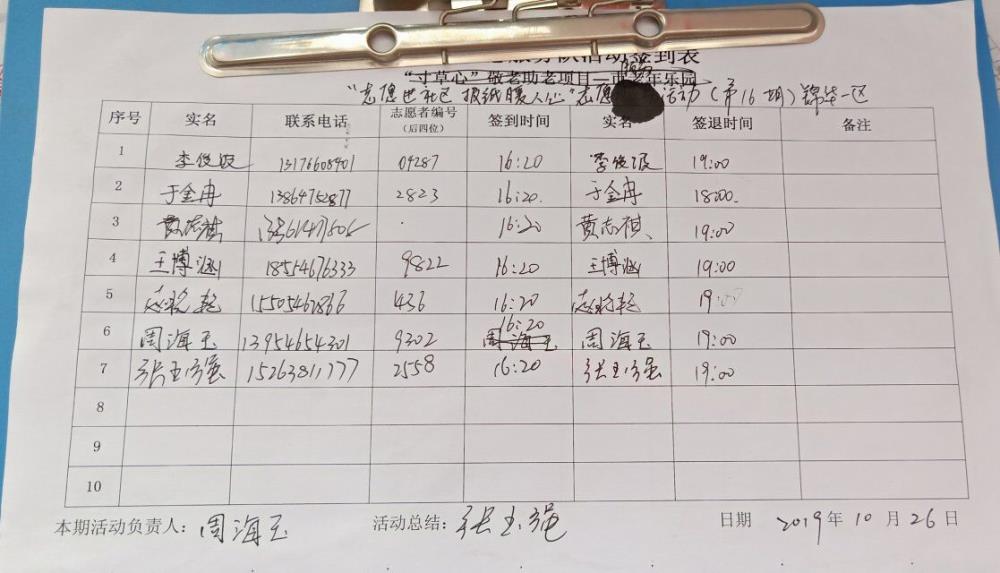 服务队活动签到表
"寸草心"敬老助老项目—市老年乐园
"志愿进社区 报纸暖人心"志愿 活动(第16期)锦华一区
序号 实名 联系电话 志愿者编号(后四位) 签到时间 实名 签退时间 备注
1 李俊波 13176608401 04287 16:20 李俊波 19:00
2 于金冉 13864752877 2823 16:20. 于金冉 18:00.
3 黄志祺 16:20 黄志祺 19:00
4 王博涵 18554676333 9822 16:20 王博涵 19:00
5 15505467866 436 16:20 19:00
6 周海玉 13954654301 9302 16:20 周海玉 19:00
7 张玉强 15263811777 2558 16:20 张玉强 19:00
8
9
10
本期活动负责人: 周海玉 活动总结: 张玉强 日期 2019年10月26日